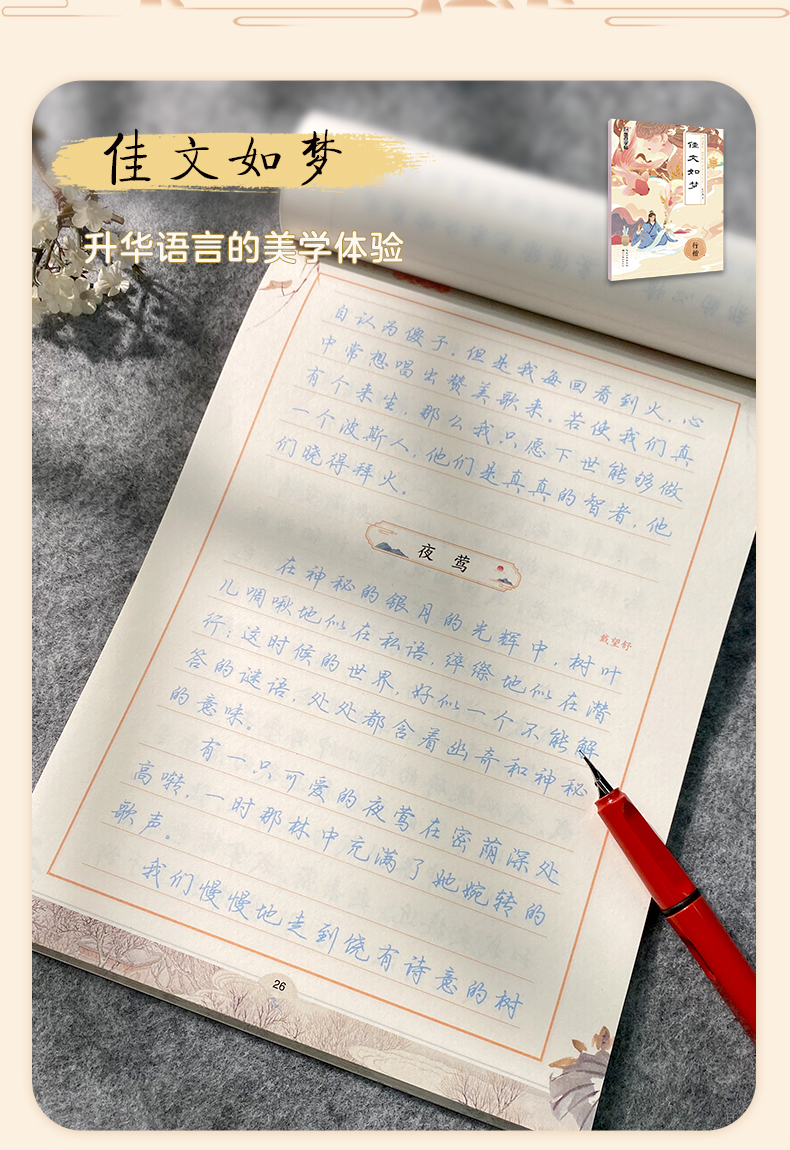 佳文如梦
升华语言的美学体验
佳文如梦
行楷
自认为傻子，但是我每回看到火，心
中常想唱出赞美歌来。若使我们真
有个来生，那么我只愿下世能够做
一个波斯人，他们是真真的智者，他
们晓得拜火。
夜莺
戴望舒
在神秘的银月的光辉中，树叶
儿啁啾地似在私语，綷縩地似在潜
行；这时候的世界，好似一个不能解
答的谜语，处处都含着幽奇和神秘
的意味。
有一只可爱的夜莺在密荫深处
高啭，一时那林中充满了她婉转的
歌声。
我们慢慢地走到饶有诗意的树
26